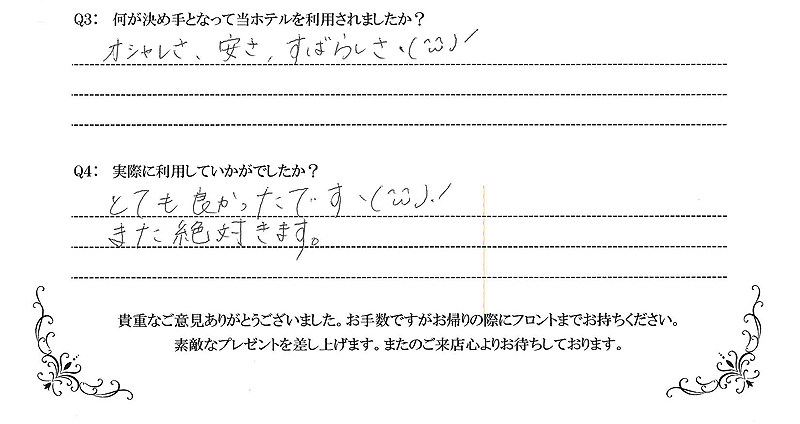 Q3: 何が決め手となって当ホテルを利用されましたか？
オシャレさ、安さ、すばらしさ ヽ(^ω^)ノ
Q4: 実際に利用していかがでしたか？
とても良かったです ヽ(^ω^)ノ
また絶対きます。
貴重なご意見ありがとうございました。お手数ですがお帰りの際にフロントまでお持ちください。
素敵なプレゼントを差し上げます。またのご来店心よりお待ちしております。